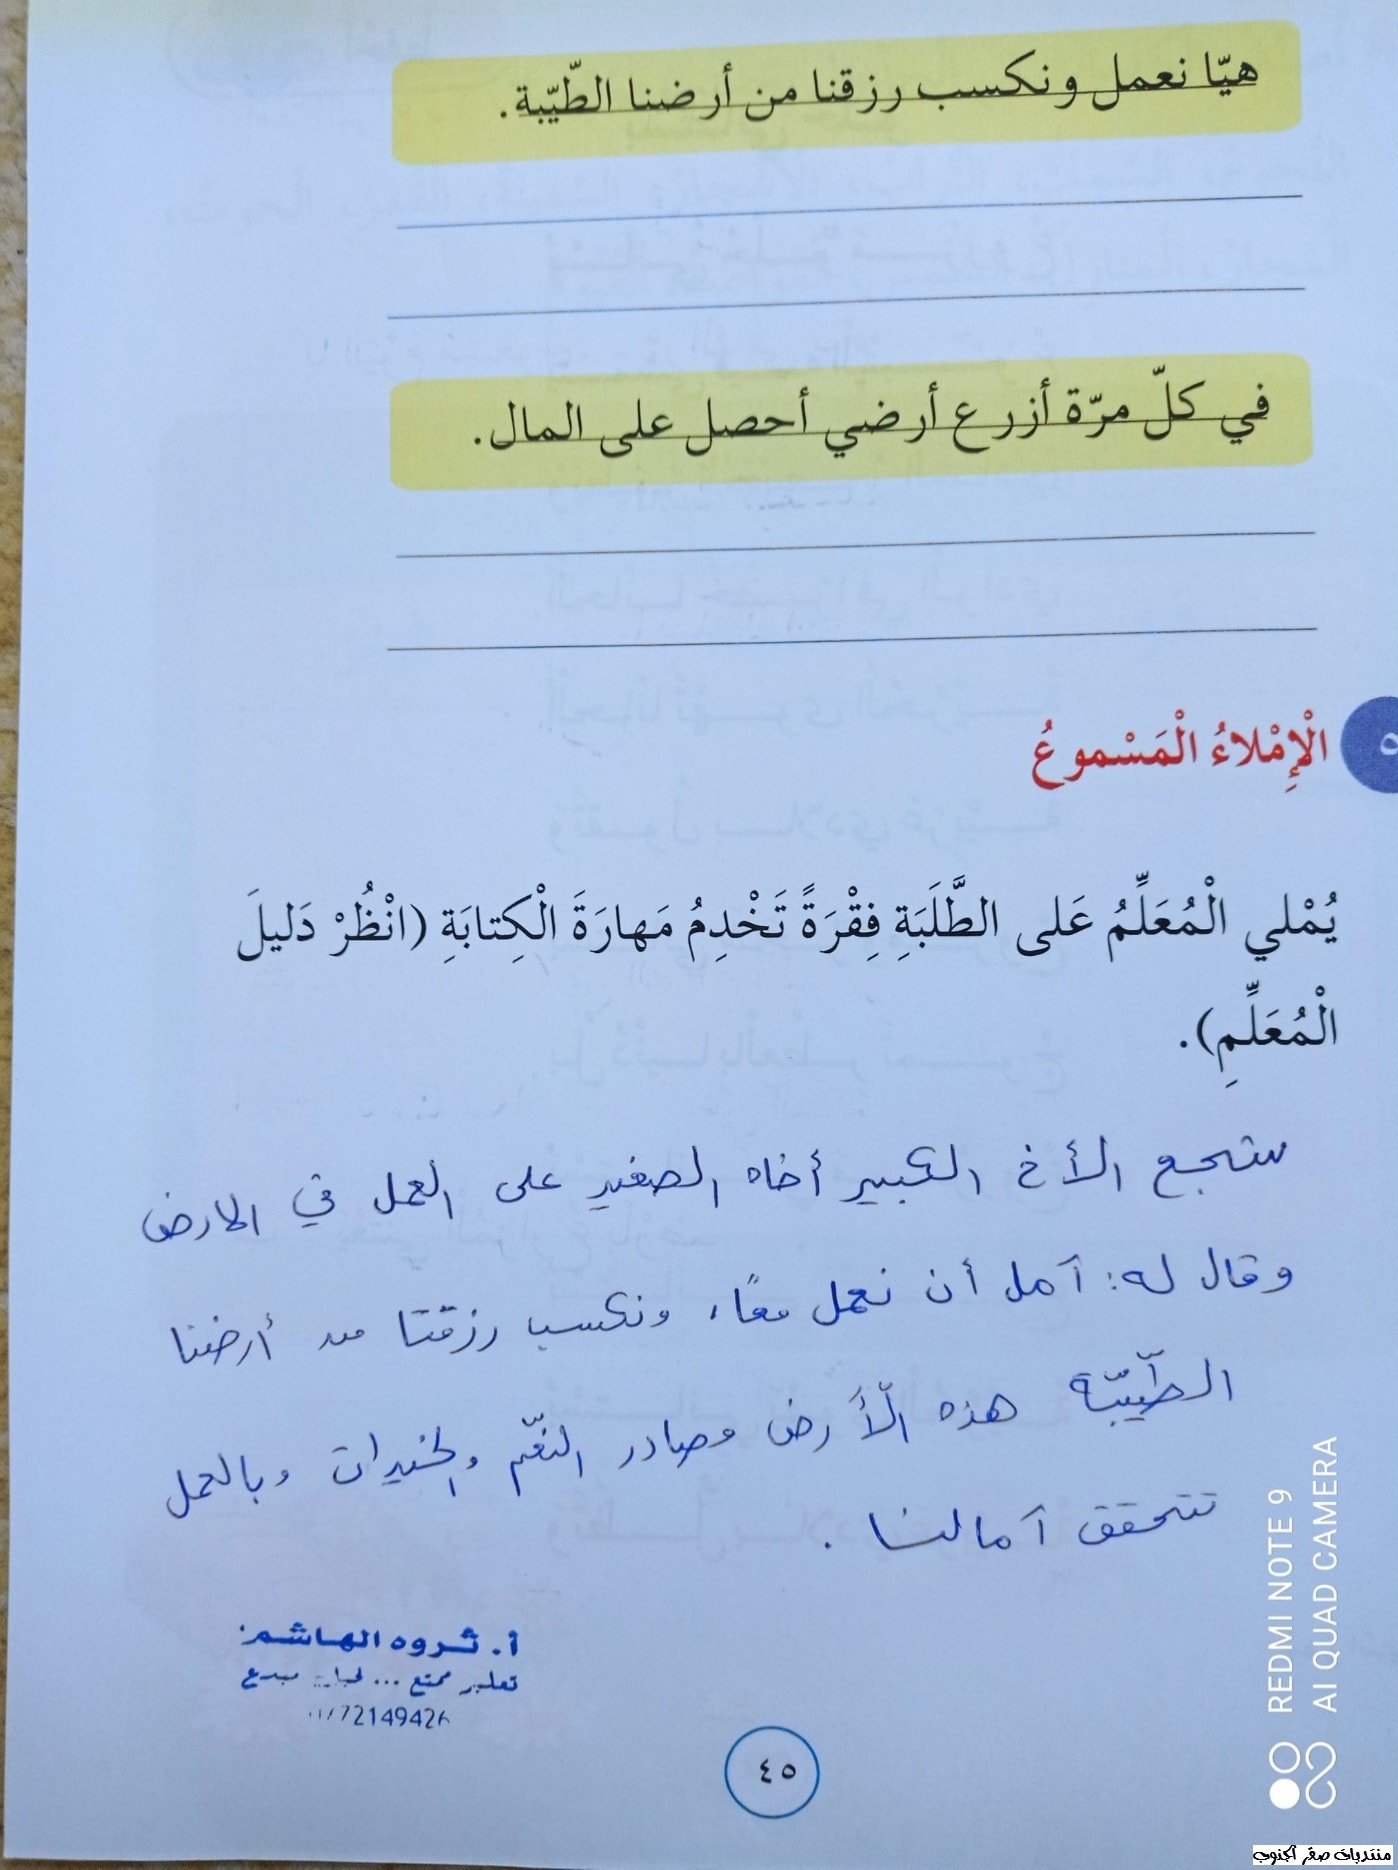 هيّا نعمل ونكسب رزقنا من أرضنا الطّيّبة.
في كلّ مرّة أزرع أرضي أحصل على المال.
٥
الْإِمْلاءُ الْمَسْموعُ
يُمْلي الْمُعَلِّمُ عَلى الطَّلَبَةِ فِقْرَةً تَخْدِمُ مَهارَةَ الْكِتابَةِ (انْظُرْ دَليلَ
الْمُعَلِّمِ).
شجع الأخ الكبير أخاه الصغير على العمل في الارض
وقال له: آمل أن نعمل معًا، ونكسب رزقنا من أرضنا
الطّيّبة هذه الأَرض مصادر النعّم والخيرات وبالعمل
تتحقق آمالنا.
أ. ثروه الهاشم
ممتع ... مبدع
72149426
٤٥
REDMI NOTE 9
AI QUAD CAMERA
منتديات صقر الجنوب